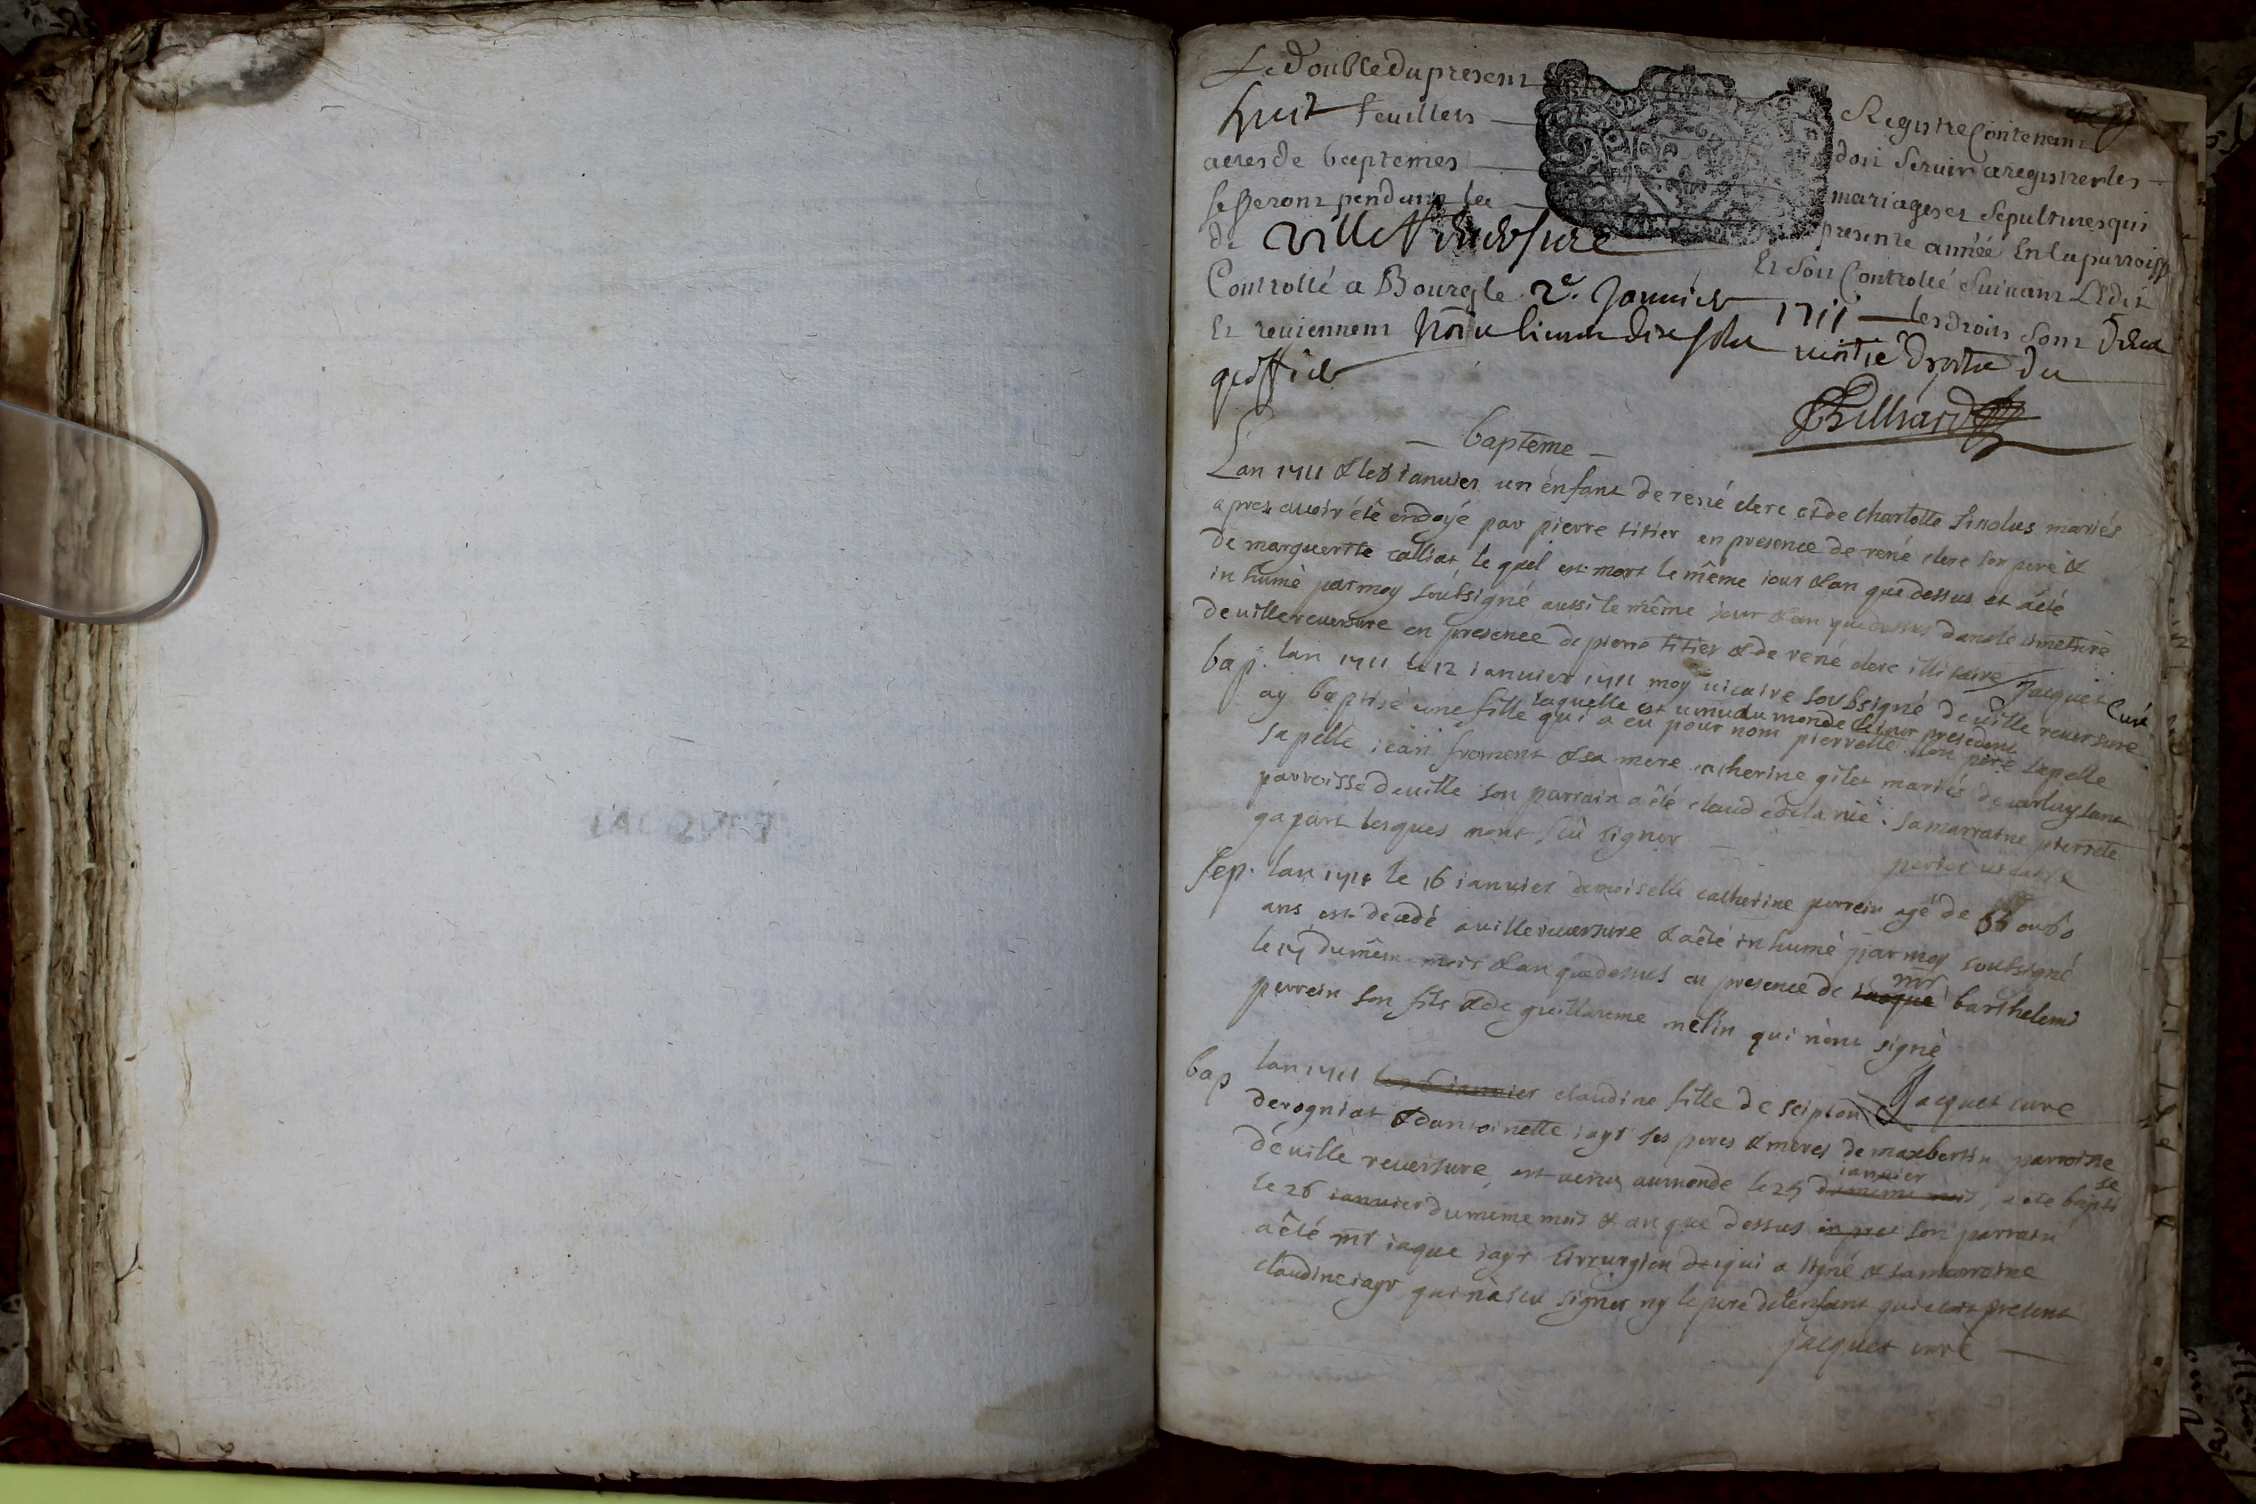 JACQUET
Le Double du present Registre Contenant
huit feuillets doit Servir a registrer les
actes de baptemes mariages et Sepultures qui
se feront pendant la presente année En la parroisse
de Villereversure Et Soit Controllé Suivant L'Edit
Controllé a Bourg le 2e. Janvier 1711 les droits sont
Et reviennent
greffier
Billiard
baptême
L'an 1711 & le 8 ianvier un enfant de rené clerc et de charlotte mariés
apres avoir été endoyé par pierre titier en presence de rené clerc son pere &
de marguerite calliat, le quel est mort le même iour & an que dessus et a été
inhumé par moy soubsigné aussi le même jour & an que dessus dans le cimetiere
de villereversure en presence de pierre titier & de rené clerc Jacquet Curé
bap. lan 1711 le 12 ianvier 1711 moy vicaire soubsigné de ville reversure
laquelle est venu du monde le iour precedent
ay baptisé une fille qui a eu pour nom pierrette son pere sapelle
sapelle iean froment & sa mere catherine gilet mariés
parroisse de ville son parrain a été claude de la rüe : sa marraine pierrete
gapart lesques nont sçû signer
vicaire
sep. lan 1711 le 16 ianvier demoiselle catherine perrein agé de ou 60
ans est decedé a villereversure & a été inhumé par moy soubsigné
le 17 du même mois & an que dessus en presence de iaque mr barthelemi
perrein son fils & de guillaume nelin qui n'ont signé
Jacquet curé
bap lan 1711 claudine fille de scipion
derogniat & dantoinette iayr ses peres & meres de parroisse
de ville reversure, est venu au monde le 25 du meme mois ianvier, a été baptisé
le 26 ianvier du meme mois & an que dessus son parrain
a été mr iaque iayr qui a signé & sa marraine
claudine iayr qui n'a sçu signer ny le pere de lenfant qui etoit present
jacquet curé